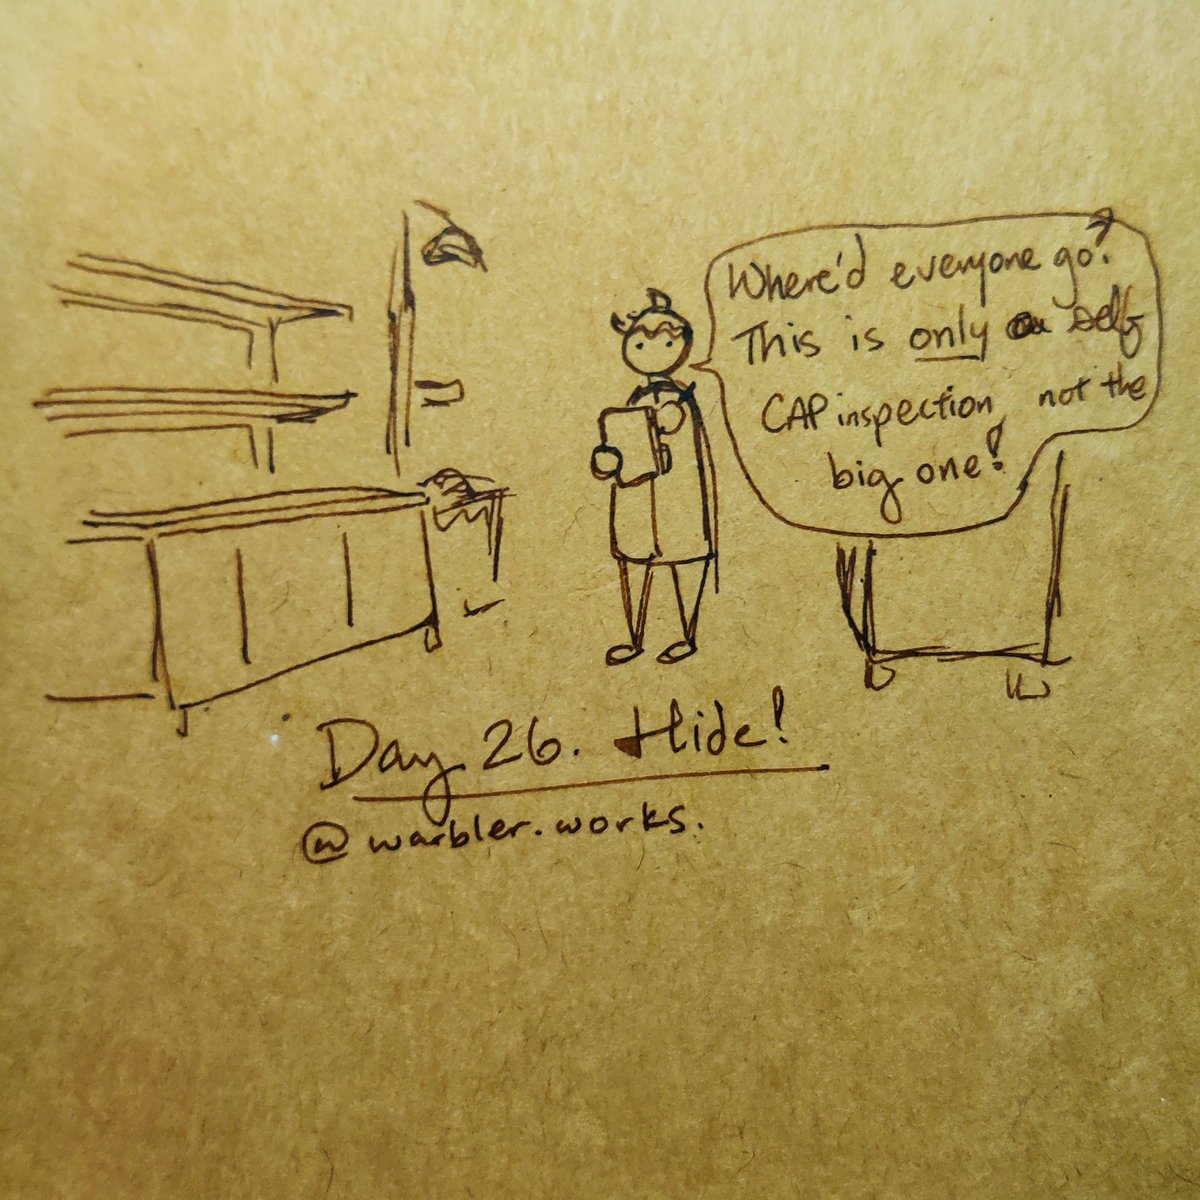 Where'd everyone go?
This is only a self
CAP inspection, not the
big one!
Day 26. Hide!
@warbler.works.